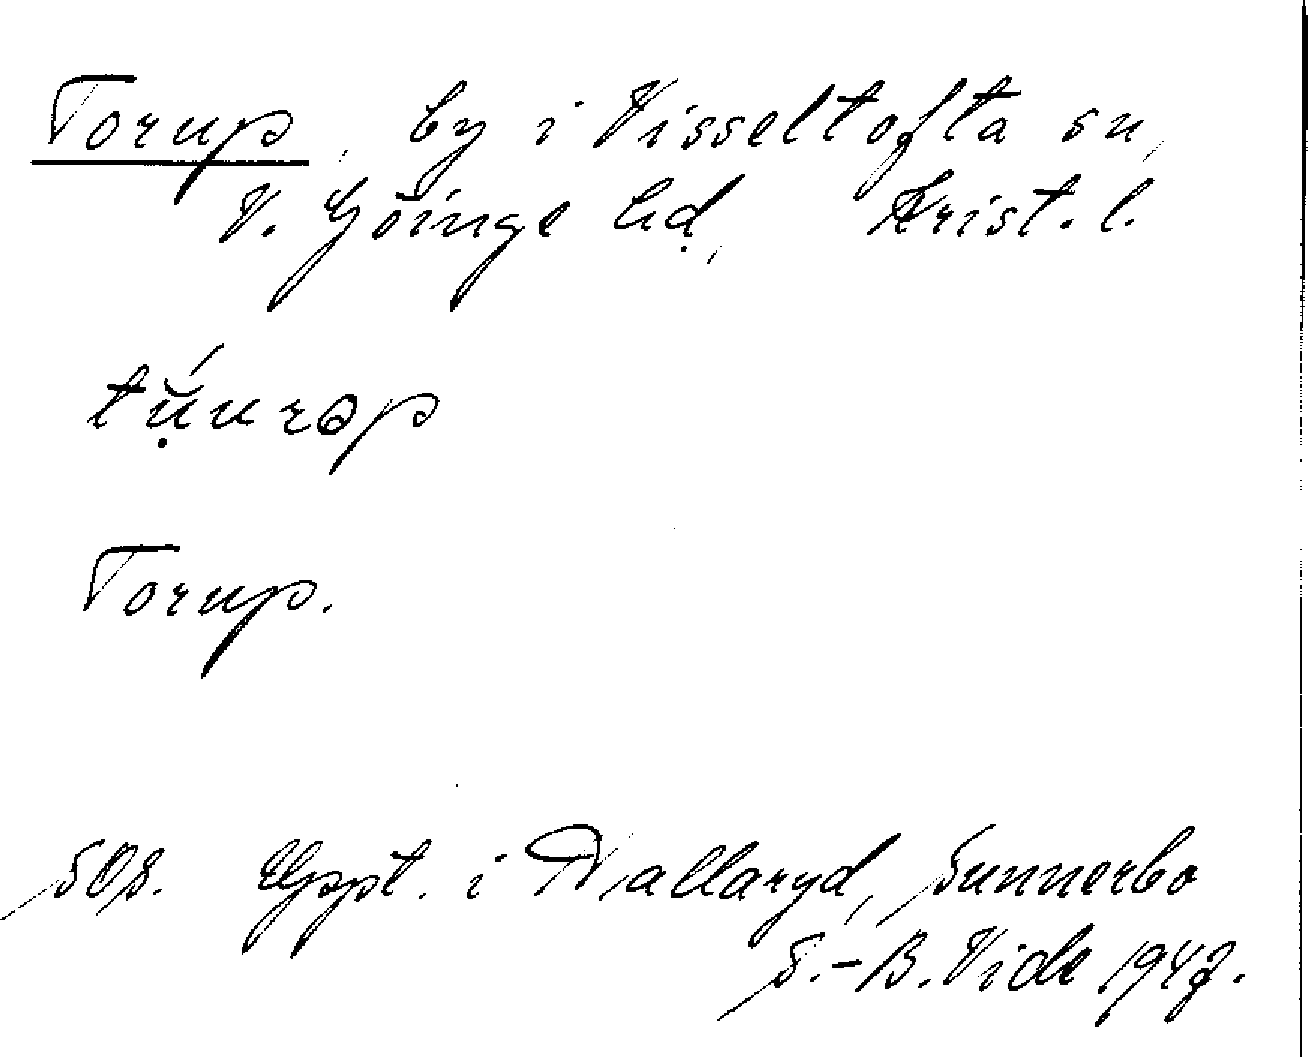 Torup, by i Visseltofta sn,
V. Göinge hd, Krist. l.
tụ̆́urəp
Torup.
508. Uppt. i Hallaryd, Sunnerbo
S.-B. Vide 1947.